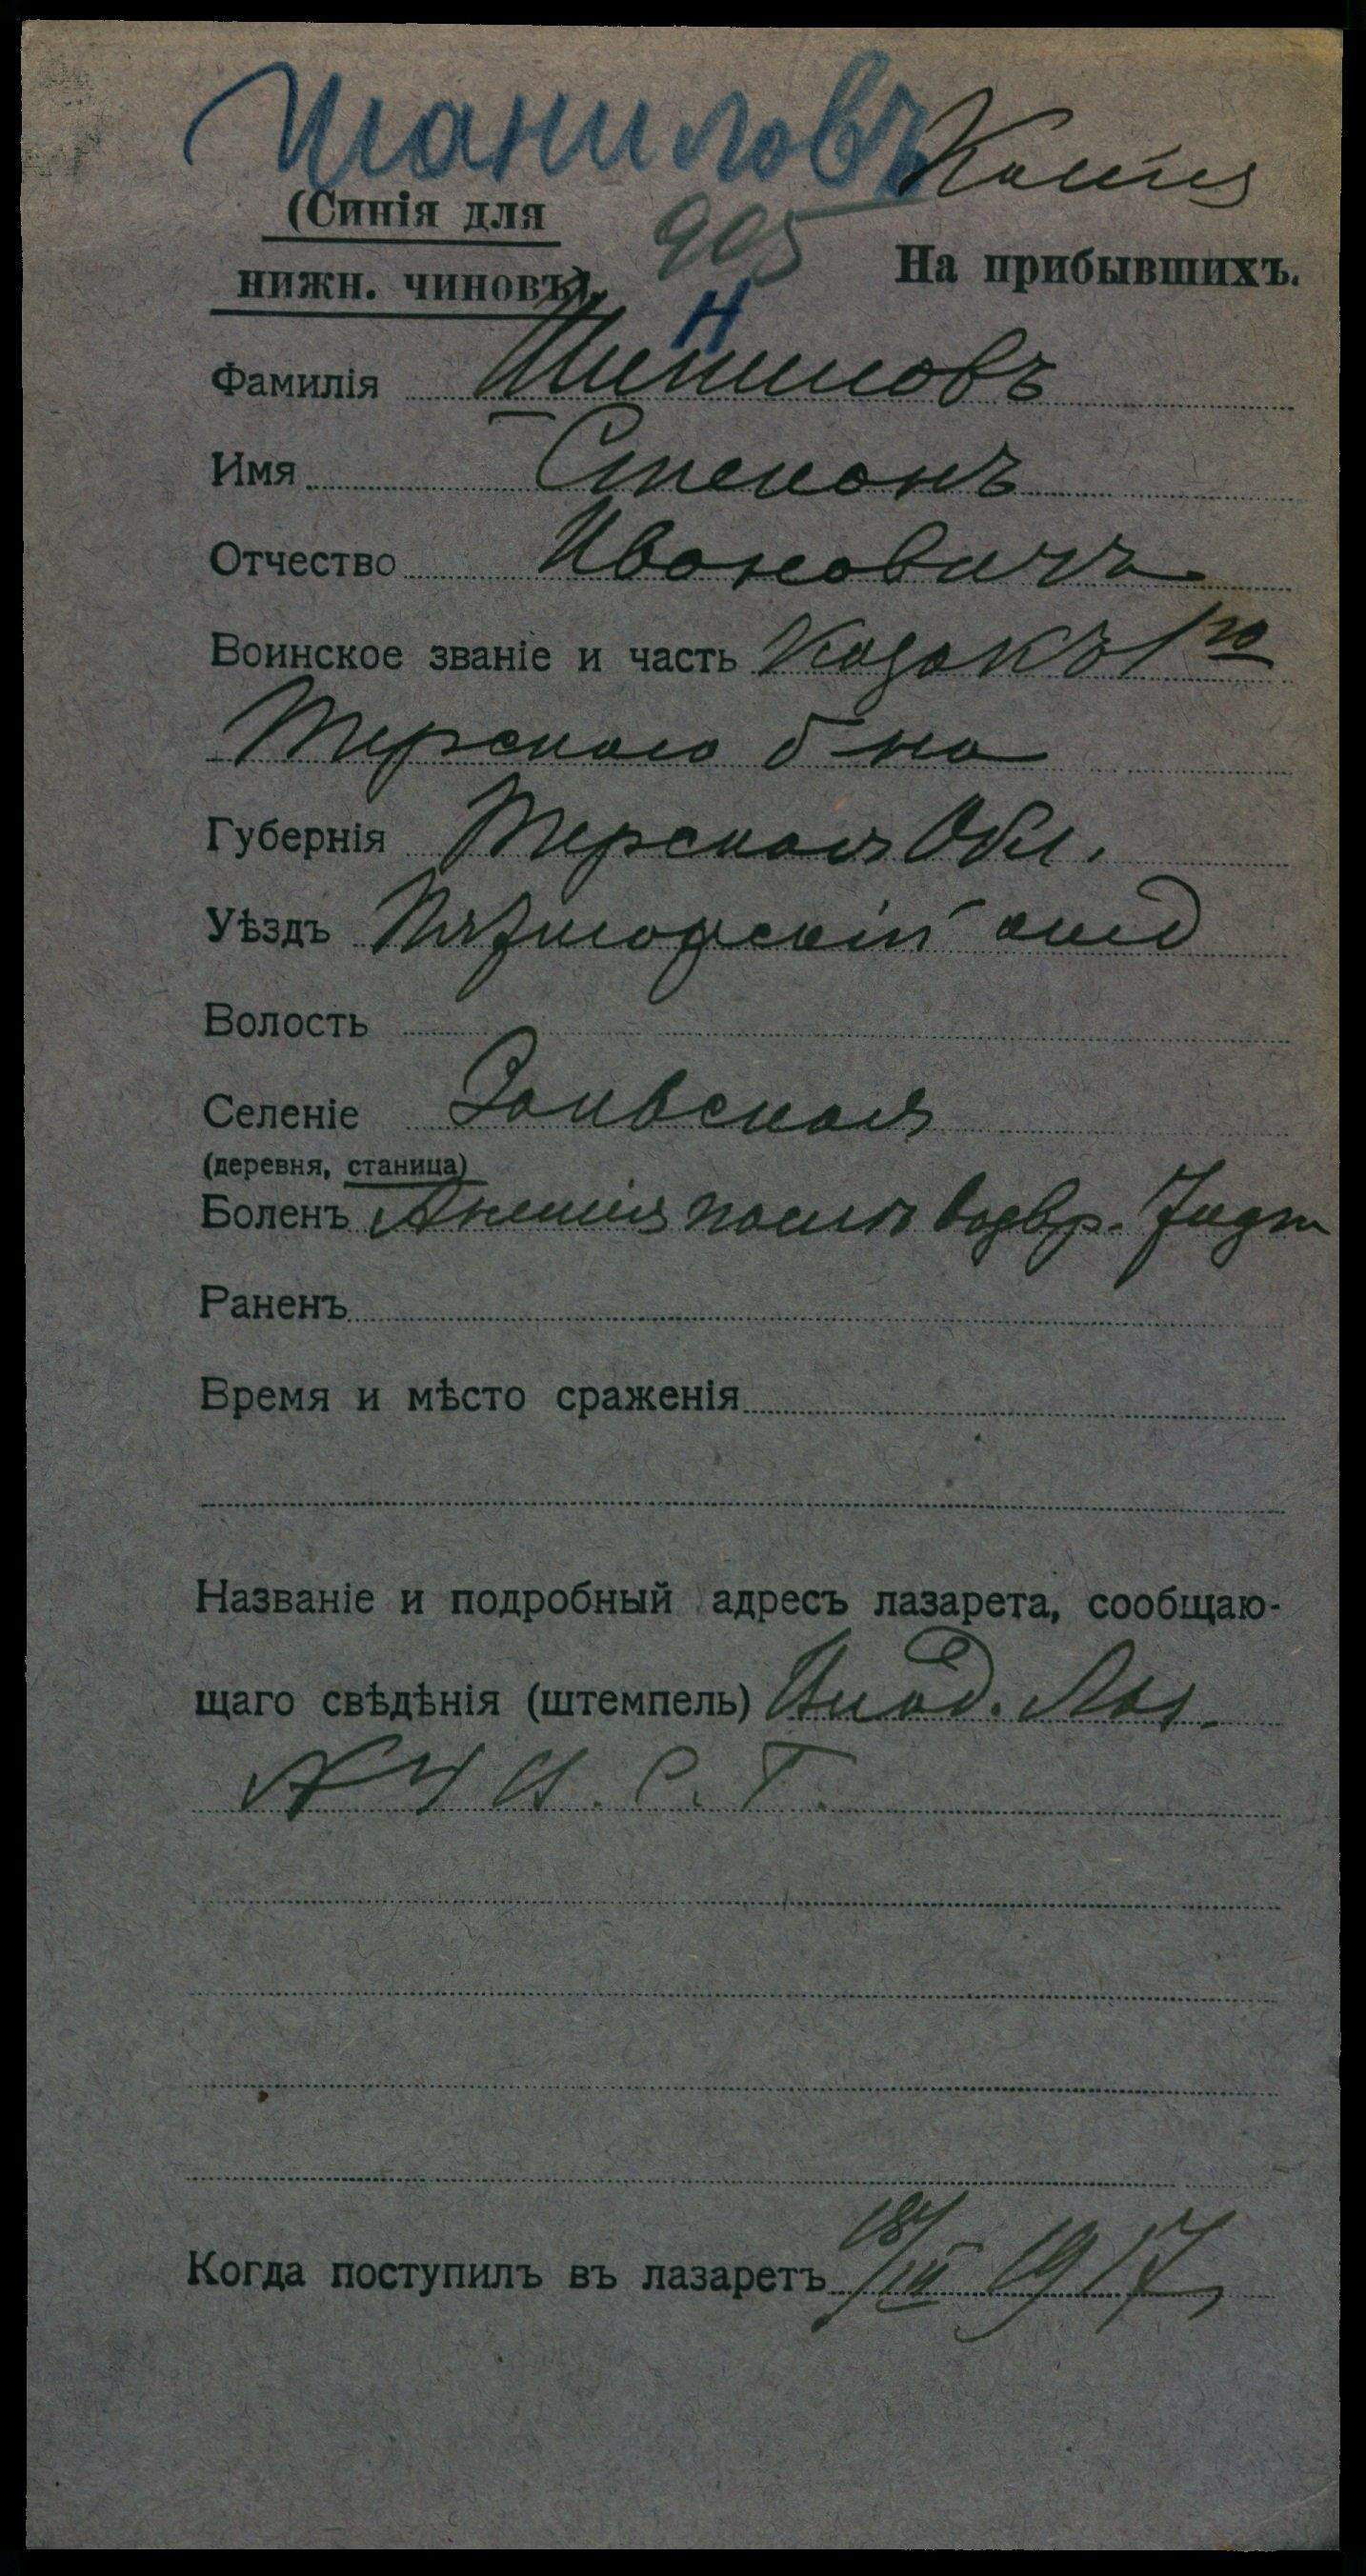 Шаниловъ Копия
(Синія для
нижн. чиновъ). 905 На прибывшихъ.
Н
Фамилія Шиниловъ
Имя Степанъ
Отчество Ивановичъ
Воинское званіе и часть Козакъ 1го
Терскаго б-на
Губернія Терская Обл.
Уѣздъ Пятигорскій отд
Волость
Селеніе
(деревня, станица)
Боленъ Анемия послѣ возвр.
Раненъ
Время и мѣсто сраженія
Названіе и подробный адресъ лазарета, сообщаю-
щаго свѣдѣнія (штемпель) Лаз.
№ 4 С. Т.
Когда поступилъ въ лазаретъ 18/III 1917